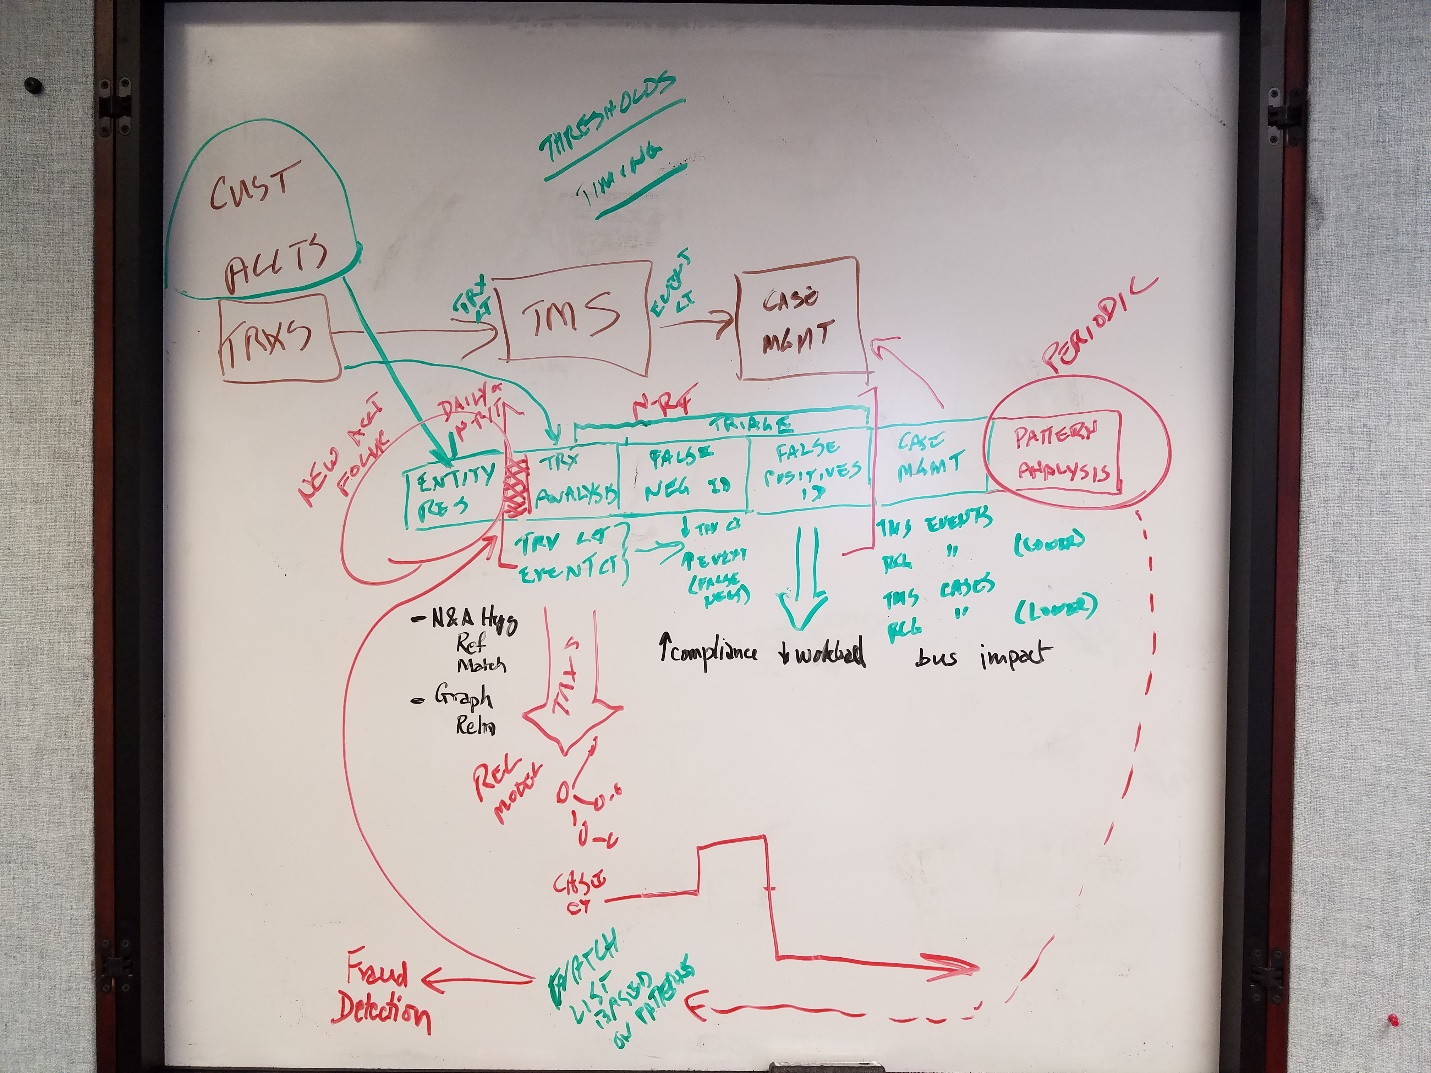 THRESHOLDS
TIMING
CUST
ACCTS
TRXS
TRX
CT
TMS
EVENT
CT
CASE
MGMT
PERIODIC
NEW ACCT
FOCUS
DAILY or
N-RT
N-RT
TRIAGE
ENTITY
RES
TRX
ANALYSIS
FALSE
NEG ID
FALSE
POSITIVES
ID
CASE
MGMT
PATTERN
ANALYSIS
TRX CT
EVENT CT
↓ TRX CT
↑ EVENT
(FALSE
NEGS)
TMS EVENTS
RCL " (LOWER)
TMS CASES
RCL " (LOWER)
- N&A Hyg
Ref
Match
- Graph
Reltn
↑compliance ↓ workload bus impact
TRXS
REL
MODEL
CASE
CT
WATCH
LIST
BASED
ON PATTERNS
Fraud
Detection